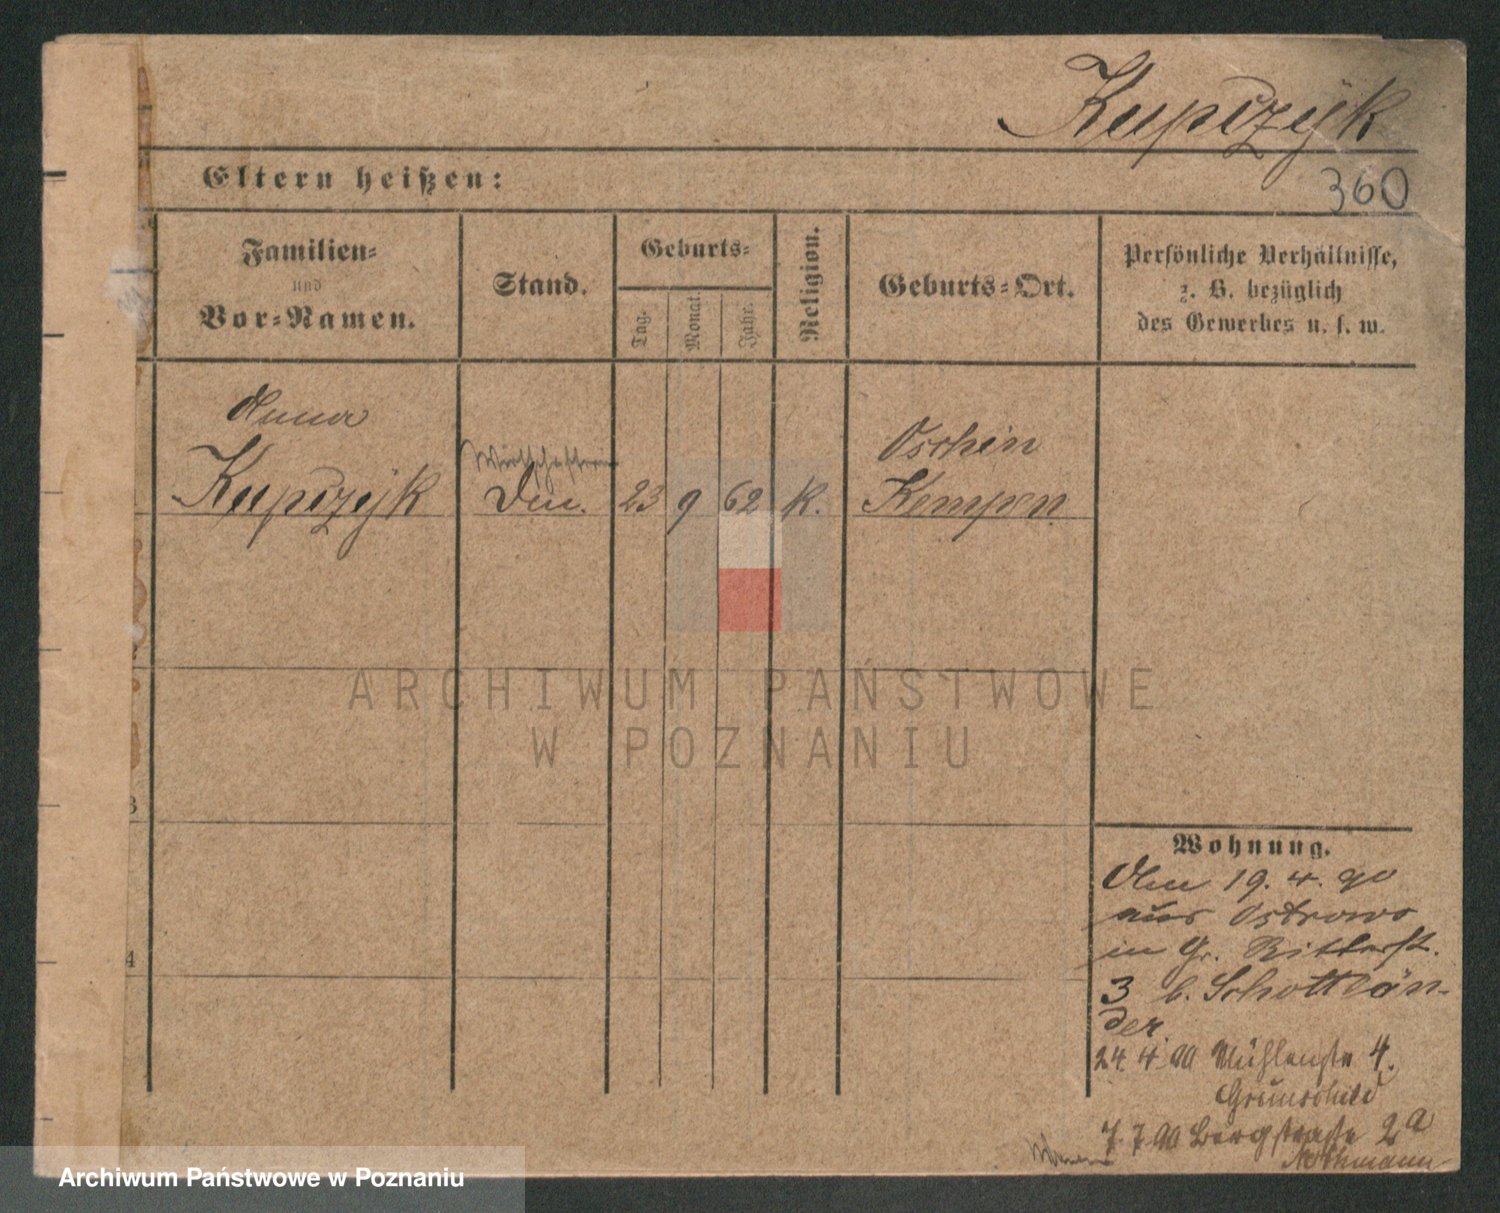 Kupczyk
Eltern heißen:
360
Familien-
und
Vor-Namen.
Stand.
Geburts-
Tag.
Monat.
Jahr.
Religion.
Geburts-Ort.
Persönliche Verhältnisse,
z. B. bezüglich
des Gewerbes u. s. w.
Anna
Kupczyk
Wirthschafterin
23
9
62
K.
Oschin
Kempen
ARCHIWUM PAŃSTWOWE
W POZNANIU
3
4
Wohnung.
19. 4. 90
aus Ostrowo
in Gr. Ritterst.
3 b. Schottlän-
der.
24. 4. 90 Mühlenstr 4.
Grünschild
7. 7. 90 Bergstraße 2a
Nothmann
Archiwum Państwowe w Poznaniu